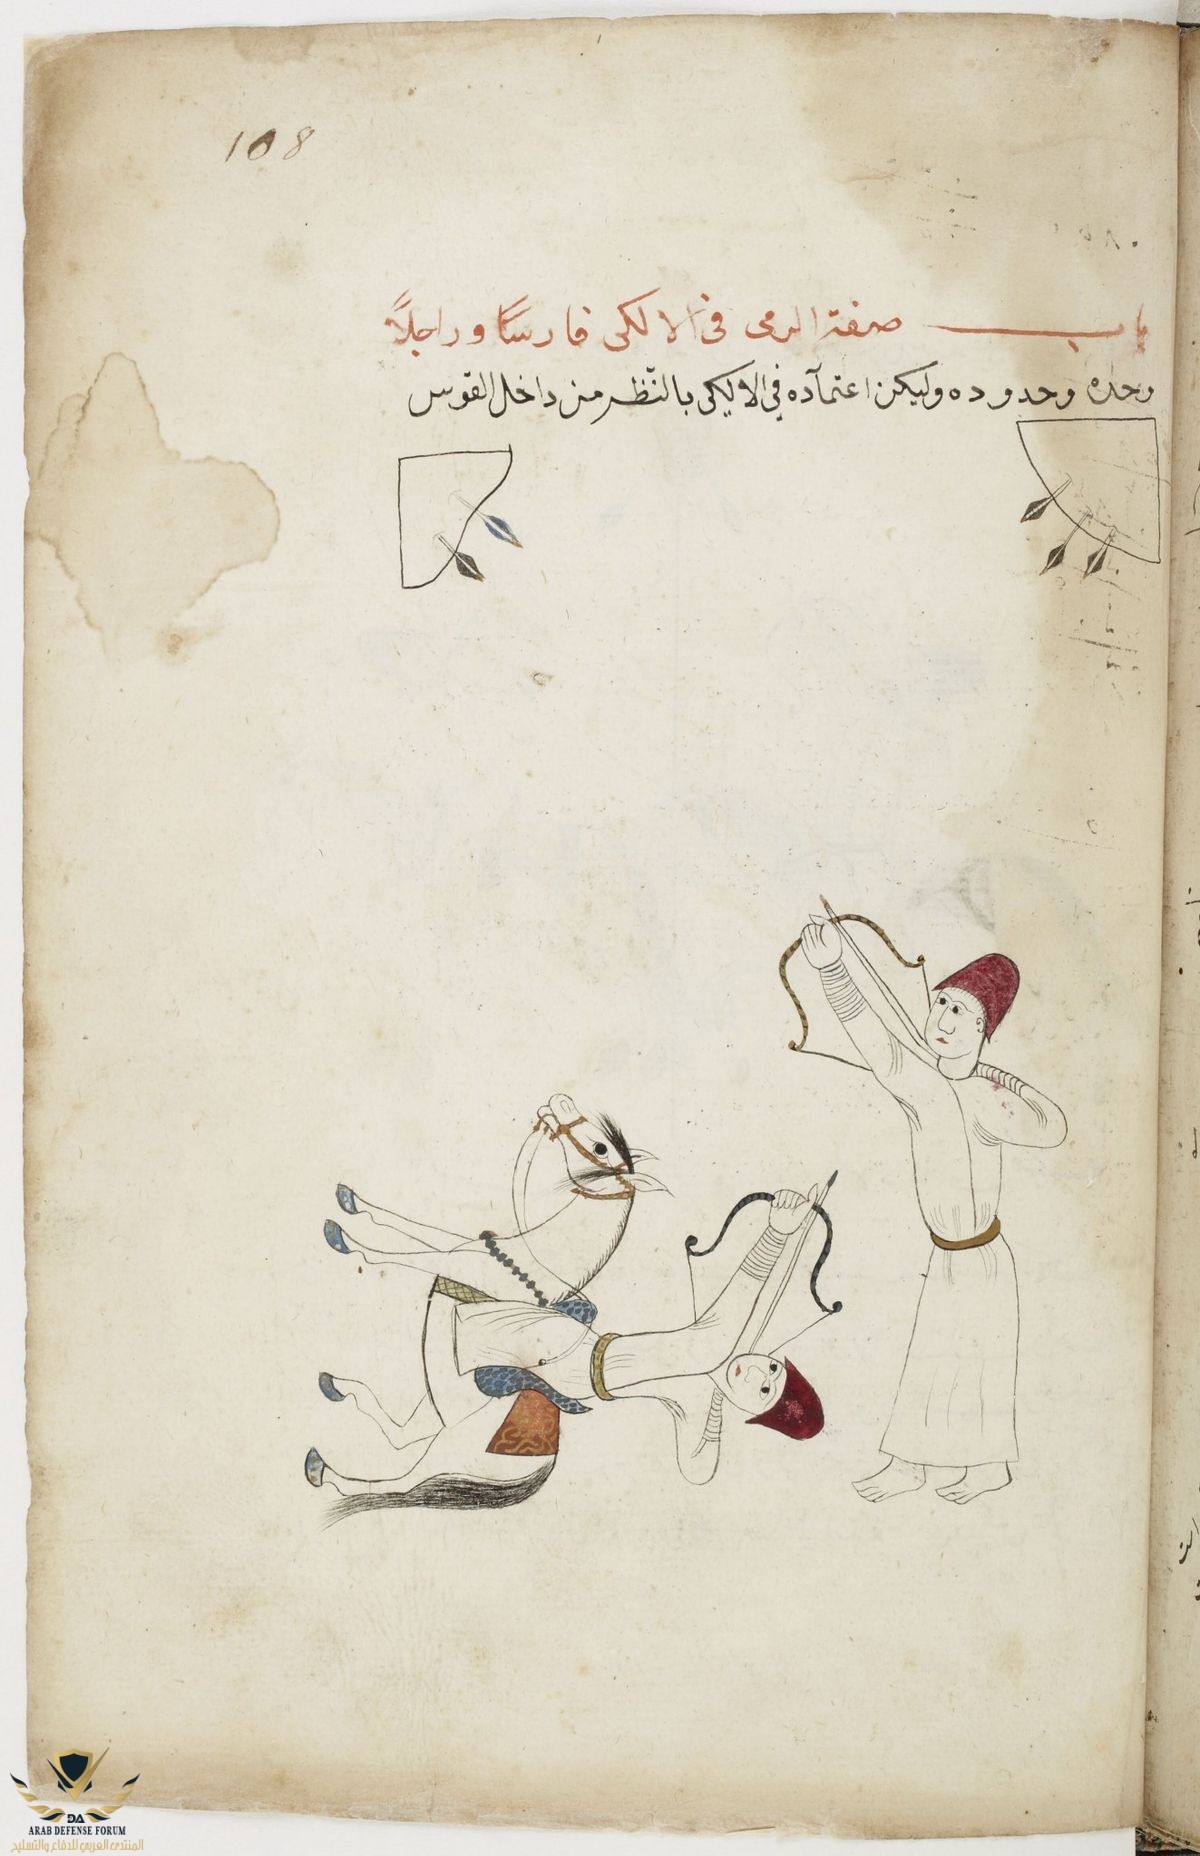 108
باب صفة الرمى فى الالكى فارسًا وراجلاً
وحده وحدوده وليكن اعتمآده فى الاليكى بالنّظر من داخل القوس
DA
ARAB DEFENSE FORUM
المنتدى العربي للدفاع والتسليح